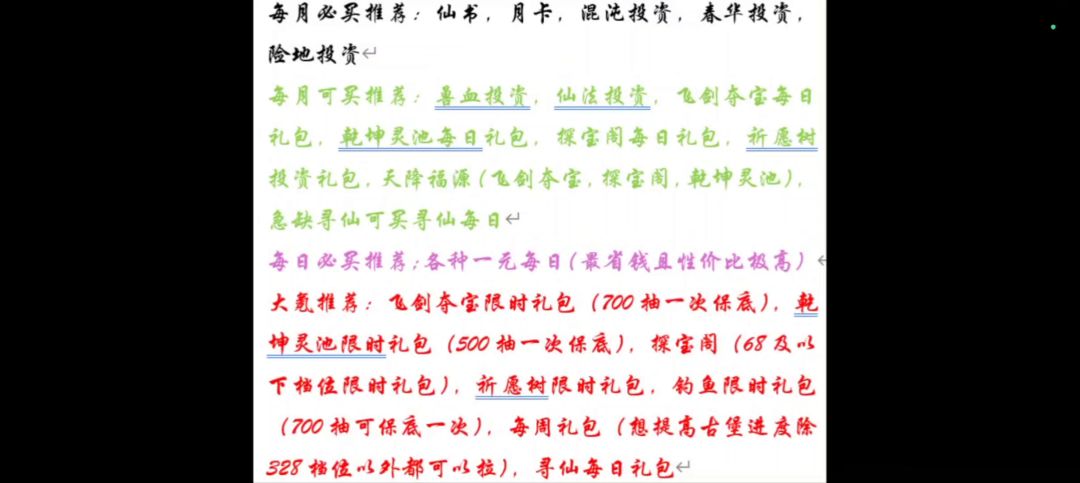 每月必买推荐：仙书，月卡，混沌投资，春华投资，
险地投资
每月可买推荐：兽血投资，仙法投资，飞剑夺宝每日
礼包，乾坤灵池每日礼包，探宝阁每日礼包，祈愿树
投资礼包，天降福源（飞剑夺宝，探宝阁，乾坤灵池），
急缺寻仙可买寻仙每日
每日必买推荐：各种一元每日（最省钱且性价比极高）
大氪推荐：飞剑夺宝限时礼包（700 抽一次保底），乾
坤灵池限时礼包（500 抽一次保底），探宝阁（68 及以
下档位限时礼包），祈愿树限时礼包，钓鱼限时礼包
（700 抽可保底一次），每周礼包（想提高古堡进度除
328 档位以外都可以拉），寻仙每日礼包